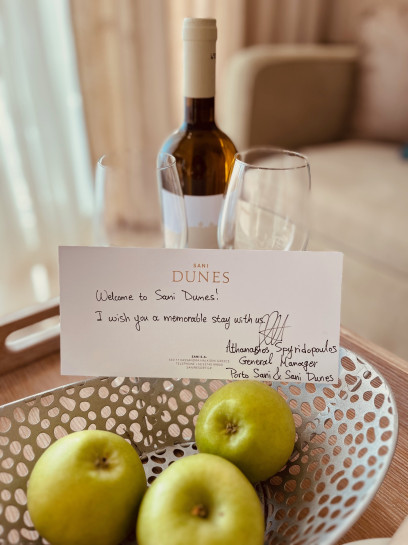 SANI
DUNES
Welcome to Sani Dunes!
I wish you a memorable stay with us,
Athanasios Spyridopoulos
General Manager
Porto Sani & Sani Dunes
SANI S.A.